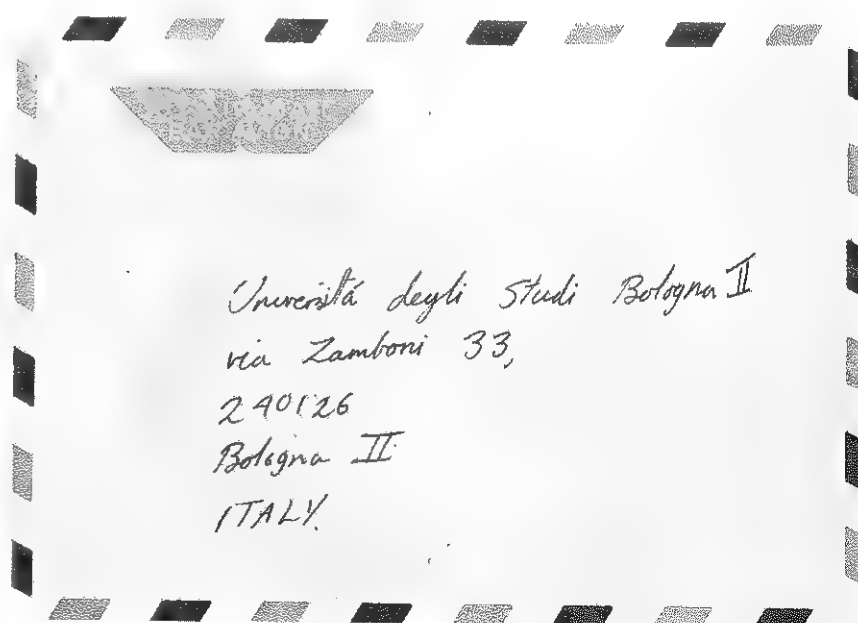 Universitá degli Studi Bologna II
via Zamboni 33,
240126
Bologna II
ITALY.